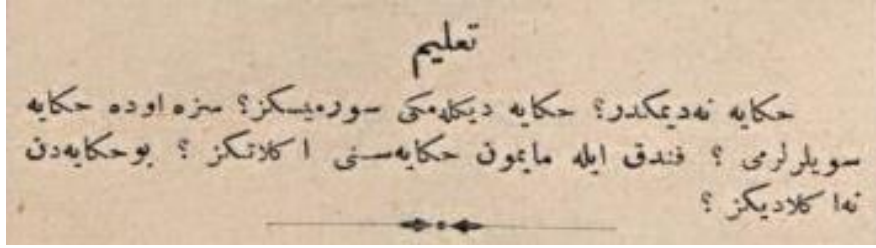 تعليم
حكايه نه‌ديمكدر؟ حكايه ديكله‌مكى سورميسكز؟ سزه اوده حكايه
سويلرلرمى ؟ فندق ايله مايمون حكايه‌سنى ا كلاتكز ؟ بوحكايه‌دن
نه‌ا كلاديكز ؟